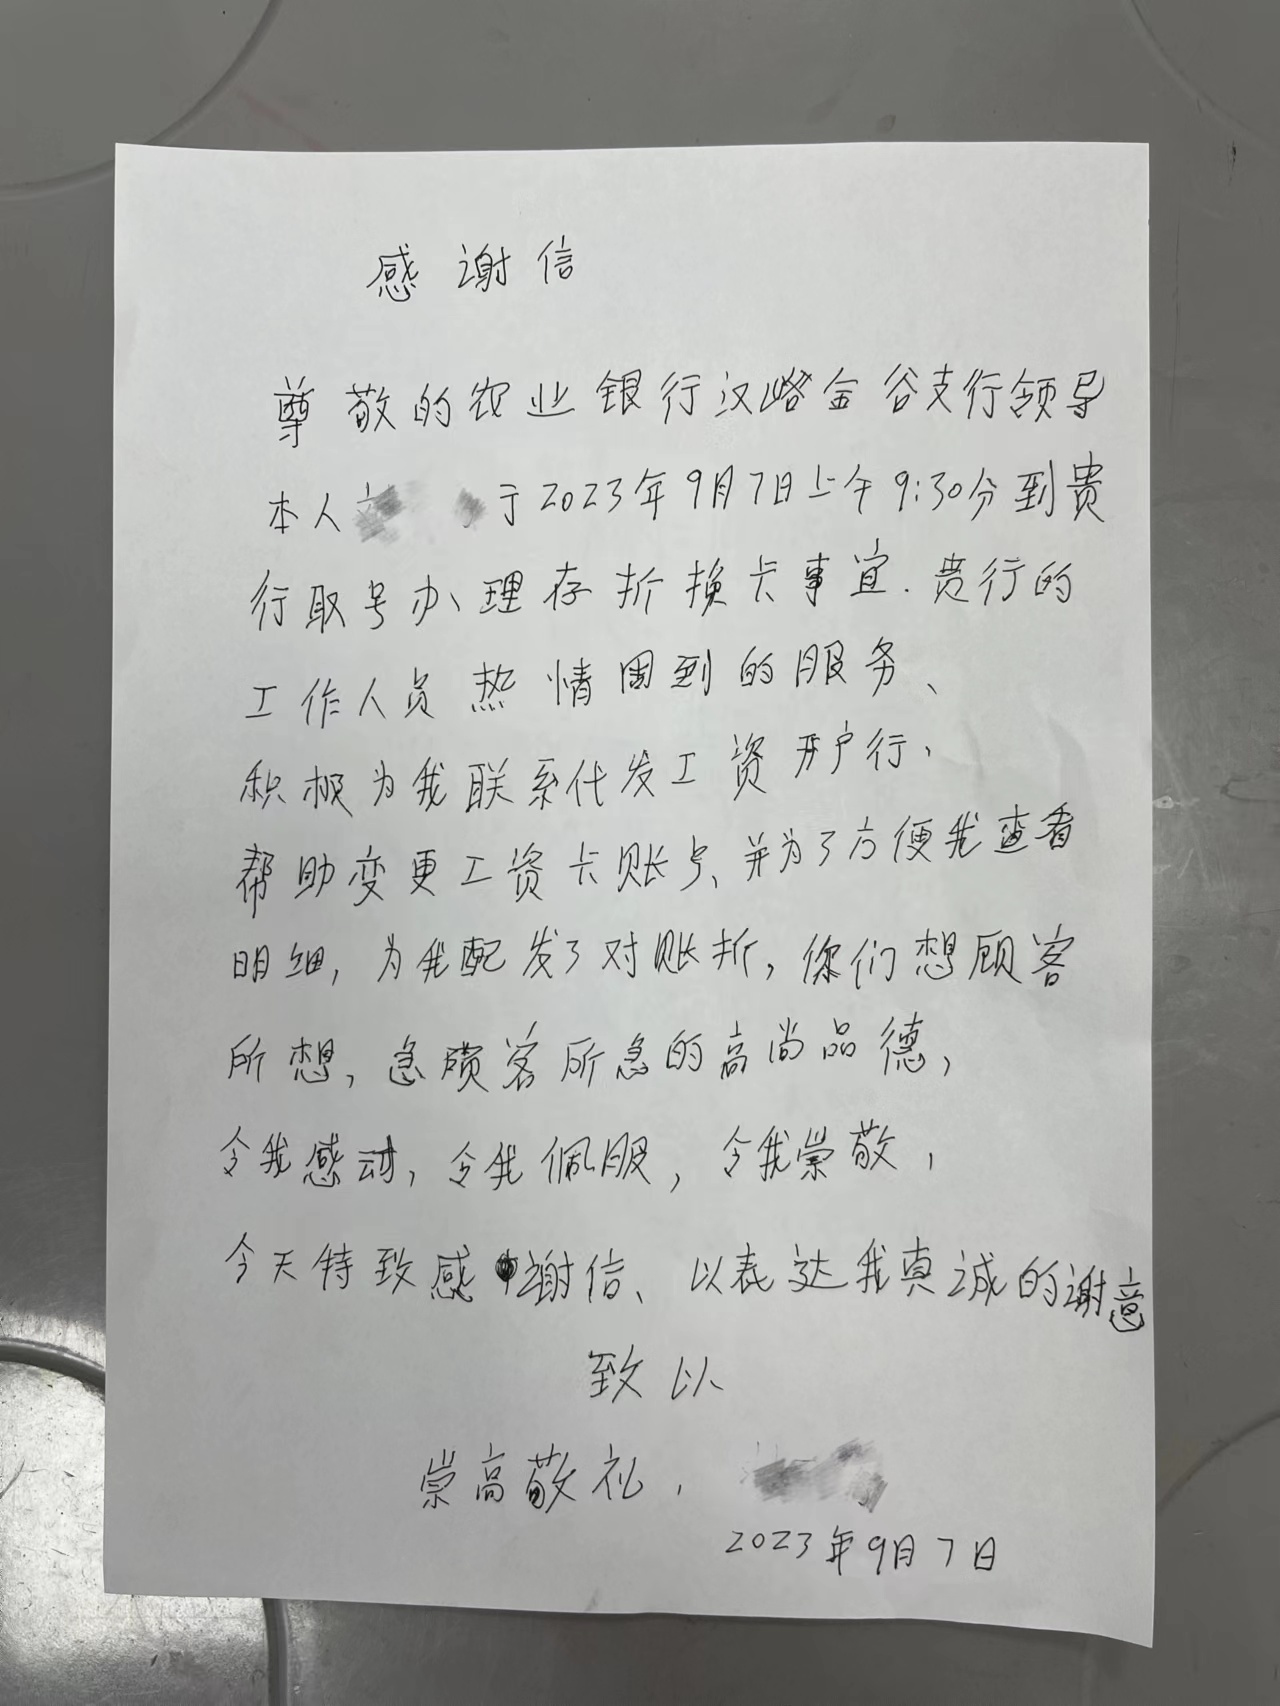 感谢信
尊敬的农业银行汉峪金谷支行领导
本人 于2023年9月7日上午9:30分到贵
行取号办理存折换卡事宜.贵行的
工作人员热情周到的服务、
积极为我联系代发工资开户行、
帮助变更工资卡账号、并为了方便我查看
明细,为我配发了对账折,你们想顾客
所想,急顾客所急的高尚品德,
令我感动,令我佩服,令我崇敬,
今天特致感谢信、以表达我真诚的谢意
致以
崇高敬礼.
2023年9月7日